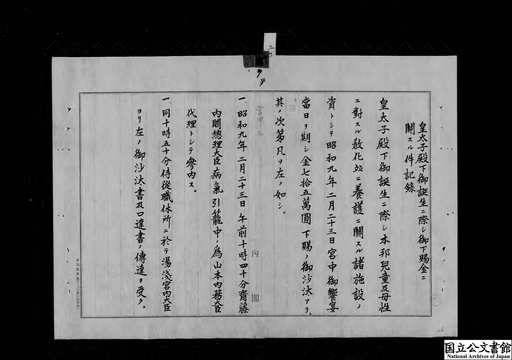 皇太子殿下御誕生ニ際シ御下賜金ニ
關スル件記錄
皇太子殿下御誕生ニ際シ本邦兒童及母性
ニ對スル敎化竝ニ養護ニ關スル諸施設ノ
資トシテ昭和九年二月二十三日宮中御饗宴
當日ヲ期シ金七拾五萬圓下賜ノ御沙汰アリ、
其ノ次第凡ソ左ノ如シ。
一、昭和九年二月二十三日午前十時四十分齋藤
內閣總理大臣病氣引籠中ノ爲山本內務大臣
代理トシテ參內ス。
一、同十時五十分侍從職休所ニ於テ湯淺宮內大臣
ヨリ左ノ御沙汰書及口達書ノ傳達ヲ受ク。
內閣
国立公文書館
National Archives of Japan